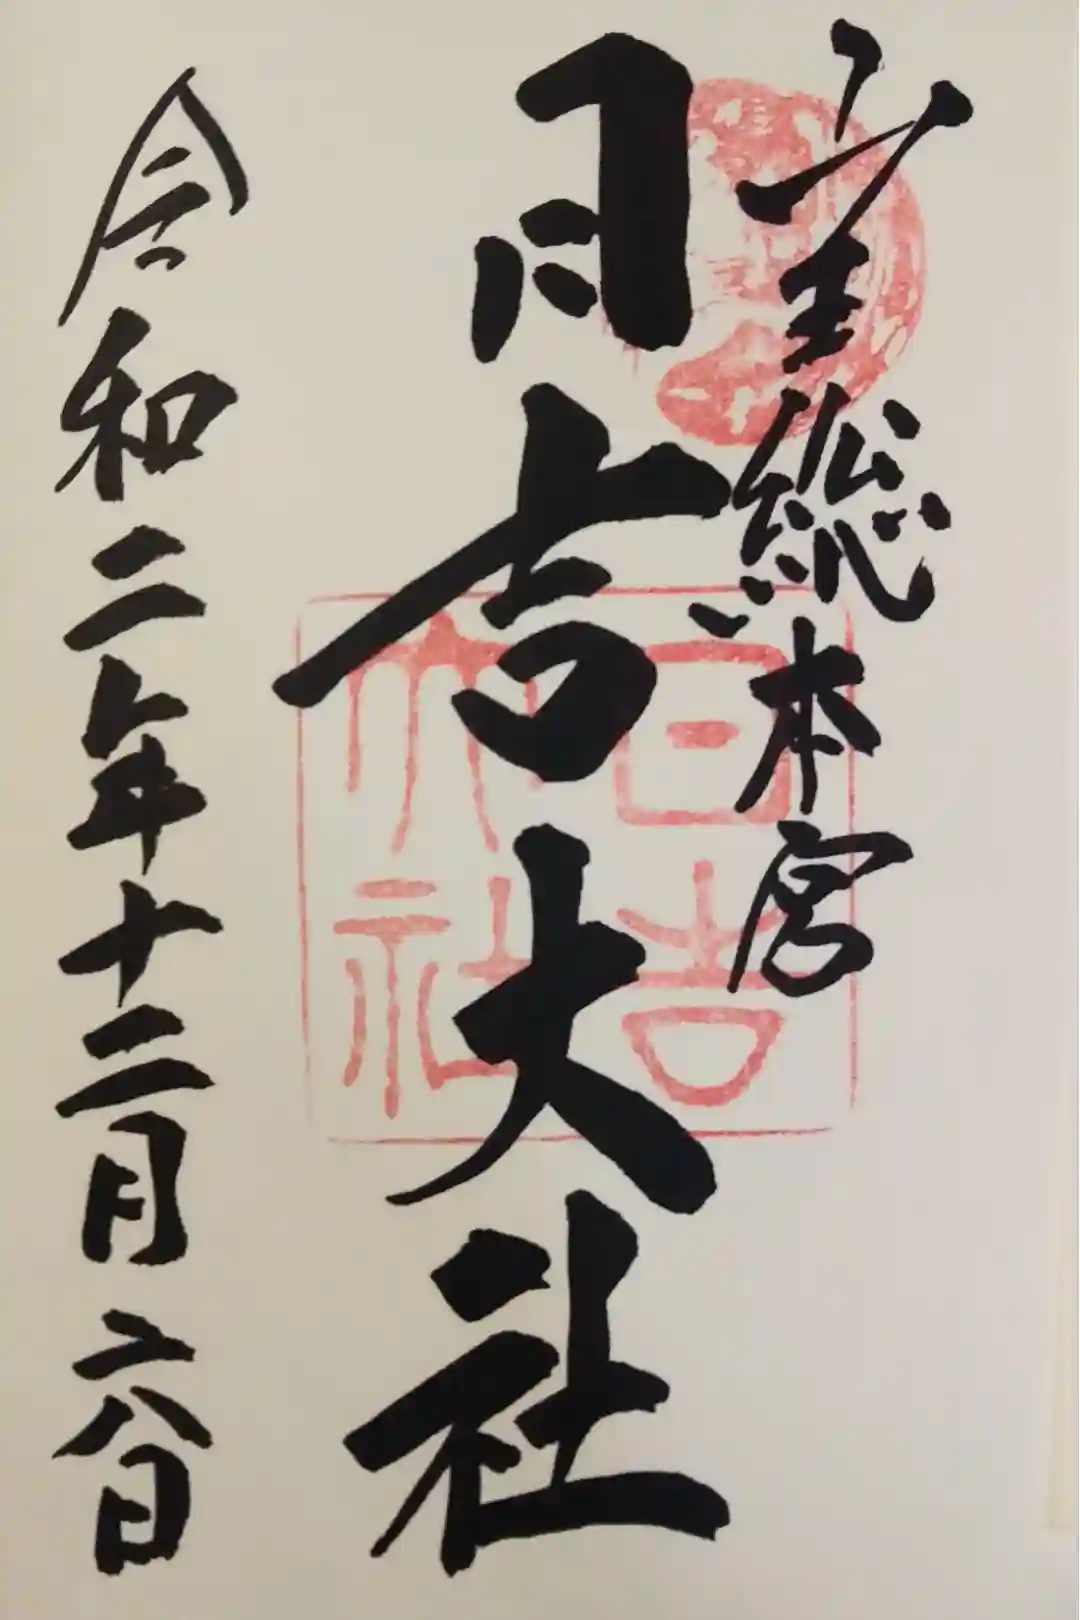 山王総本宮
日吉大社
日吉大社
令和二年十二月六日